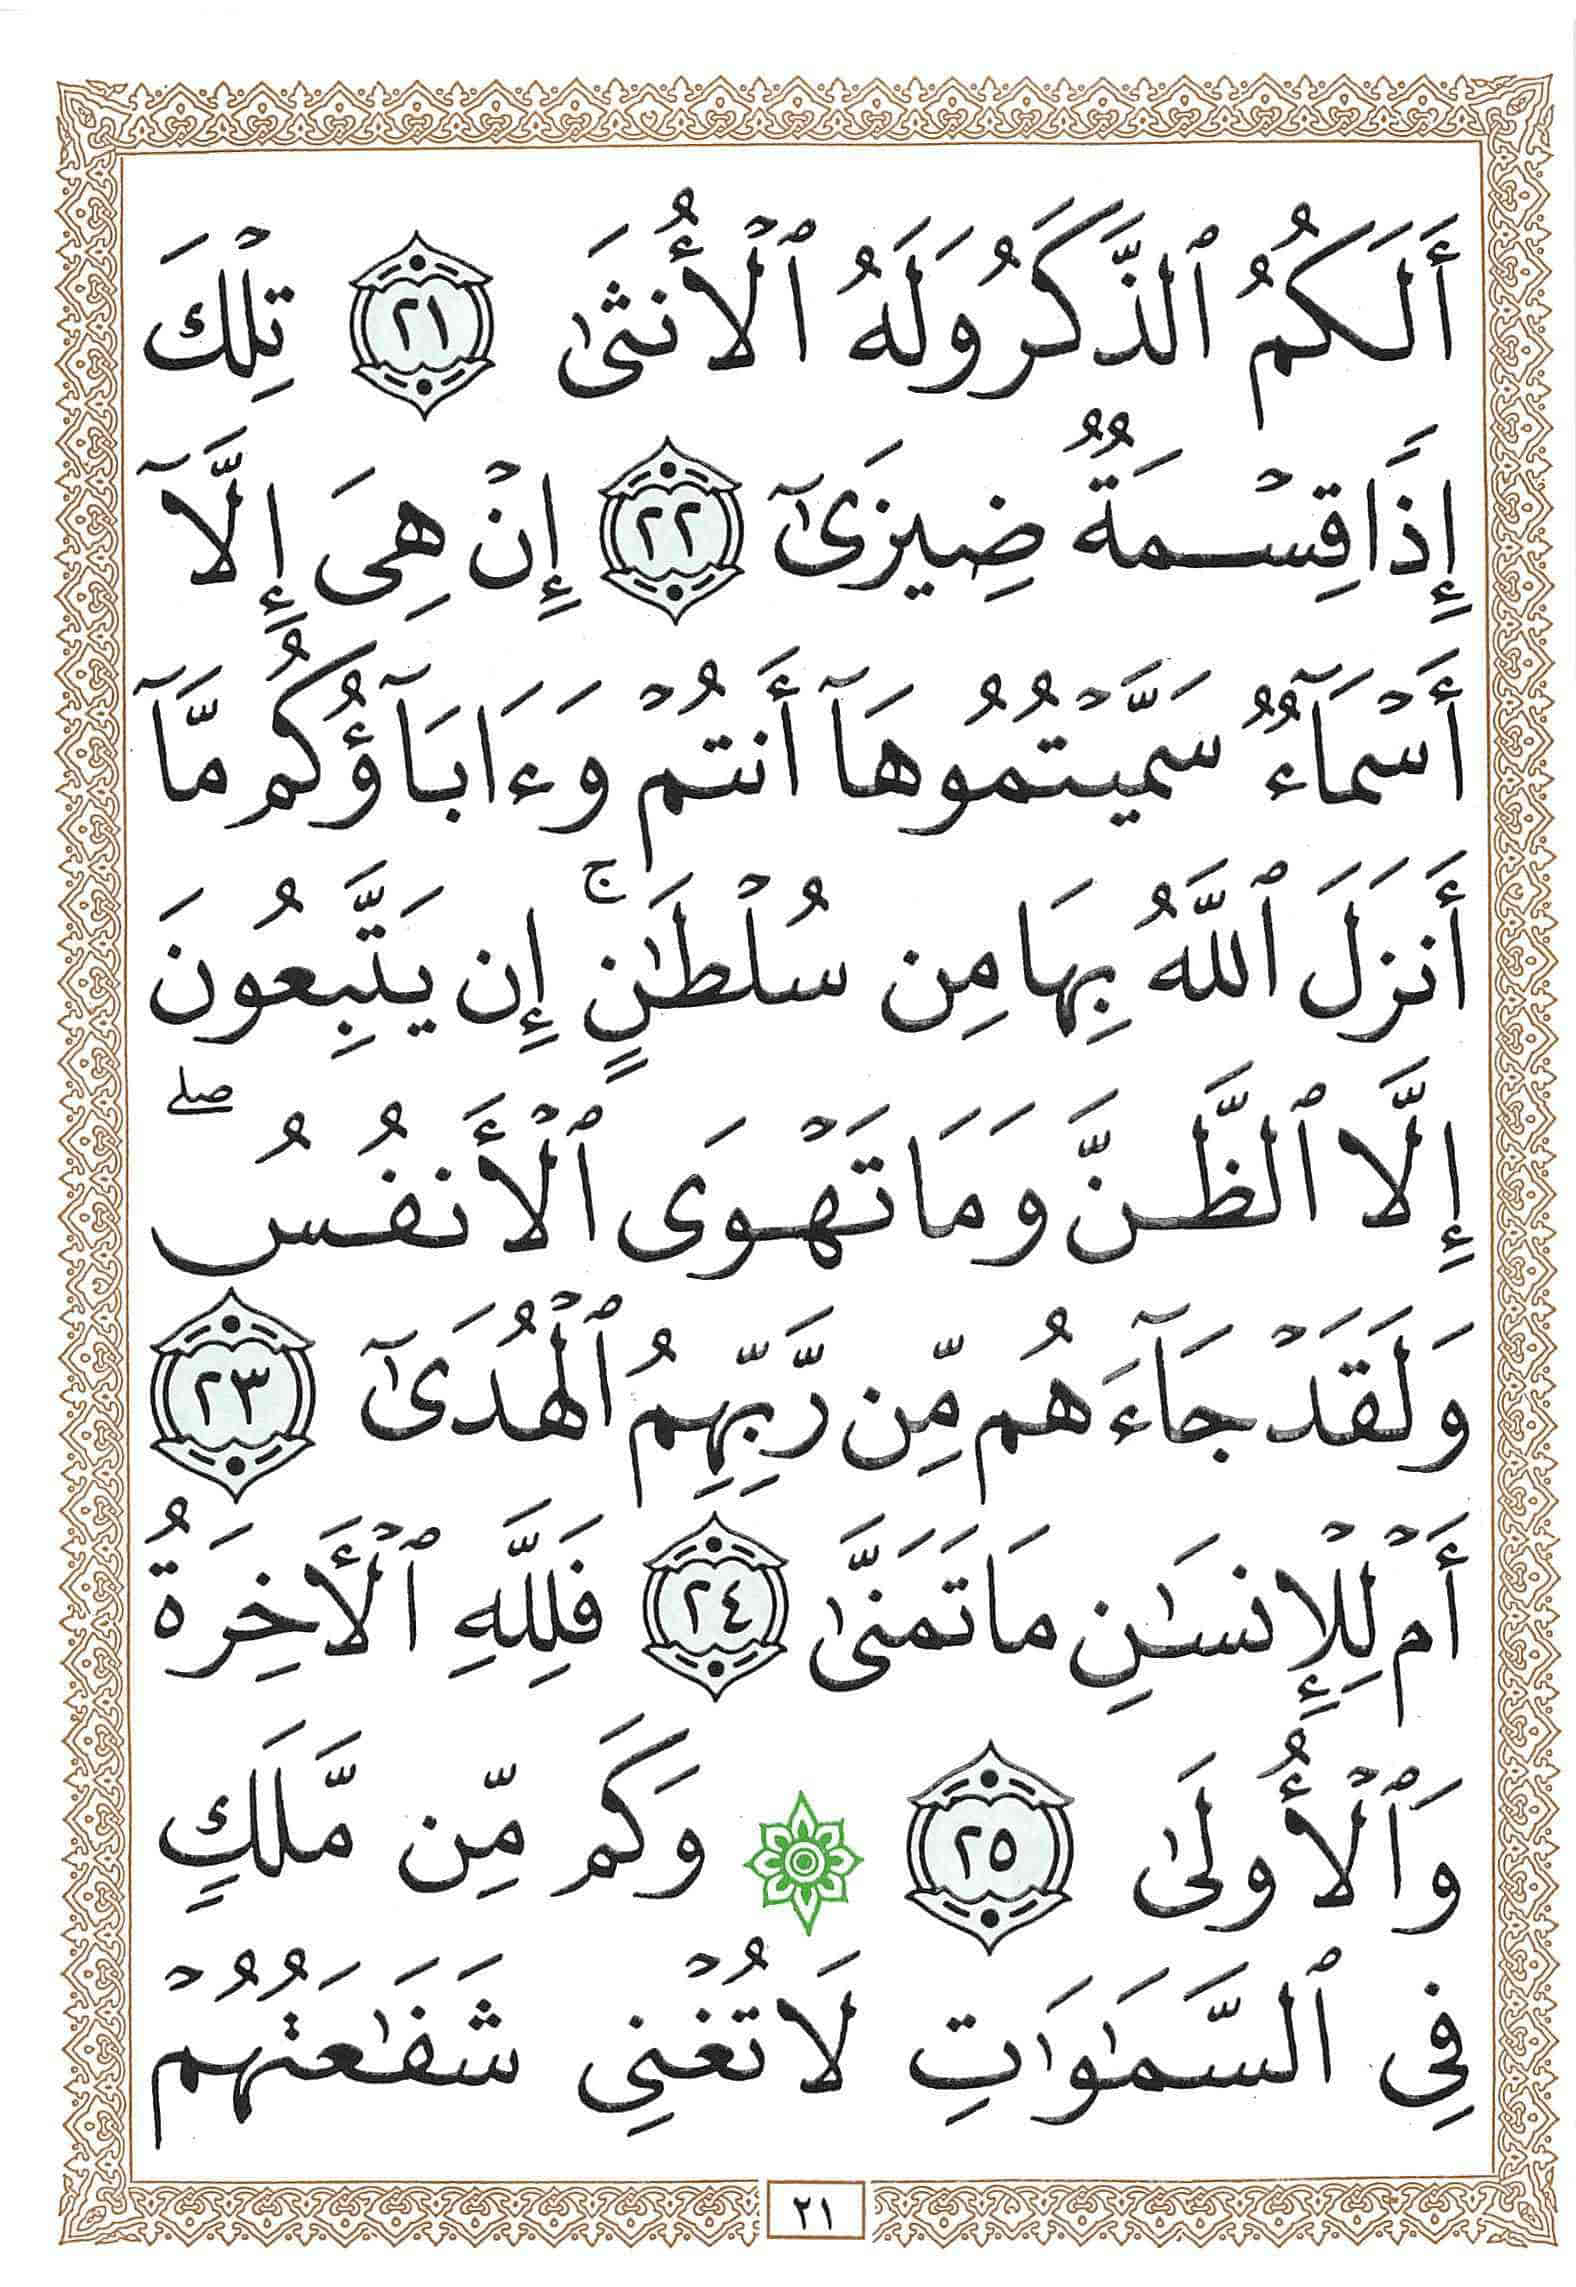 أَلَكُمُ ٱلذَّكَرُ وَلَهُ ٱلْأُنثَىٰ ٢١ تِلْكَ
إِذًا قِسْمَةٌ ضِيزَىٰٓ ٢٢ إِنْ هِىَ إِلَّآ
أَسْمَآءٌ سَمَّيْتُمُوهَآ أَنتُمْ وَءَابَآؤُكُم مَّآ
أَنزَلَ ٱللَّهُ بِهَا مِن سُلْطَٰنٍ ۚ إِن يَتَّبِعُونَ
إِلَّا ٱلظَّنَّ وَمَا تَهْوَى ٱلْأَنفُسُ ۖ
وَلَقَدْ جَآءَهُم مِّن رَّبِّهِمُ ٱلْهُدَىٰٓ ٢٣
أَمْ لِلْإِنسَٰنِ مَا تَمَنَّىٰ ٢٤ فَلِلَّهِ ٱلْأَخِرَةُ
وَٱلْأُولَىٰ ٢٥ وَكَم مِّن مَّلَكٍ
فِى ٱلسَّمَٰوَٰتِ لَا تُغْنِى شَفَٰعَتُهُمْ
٢١